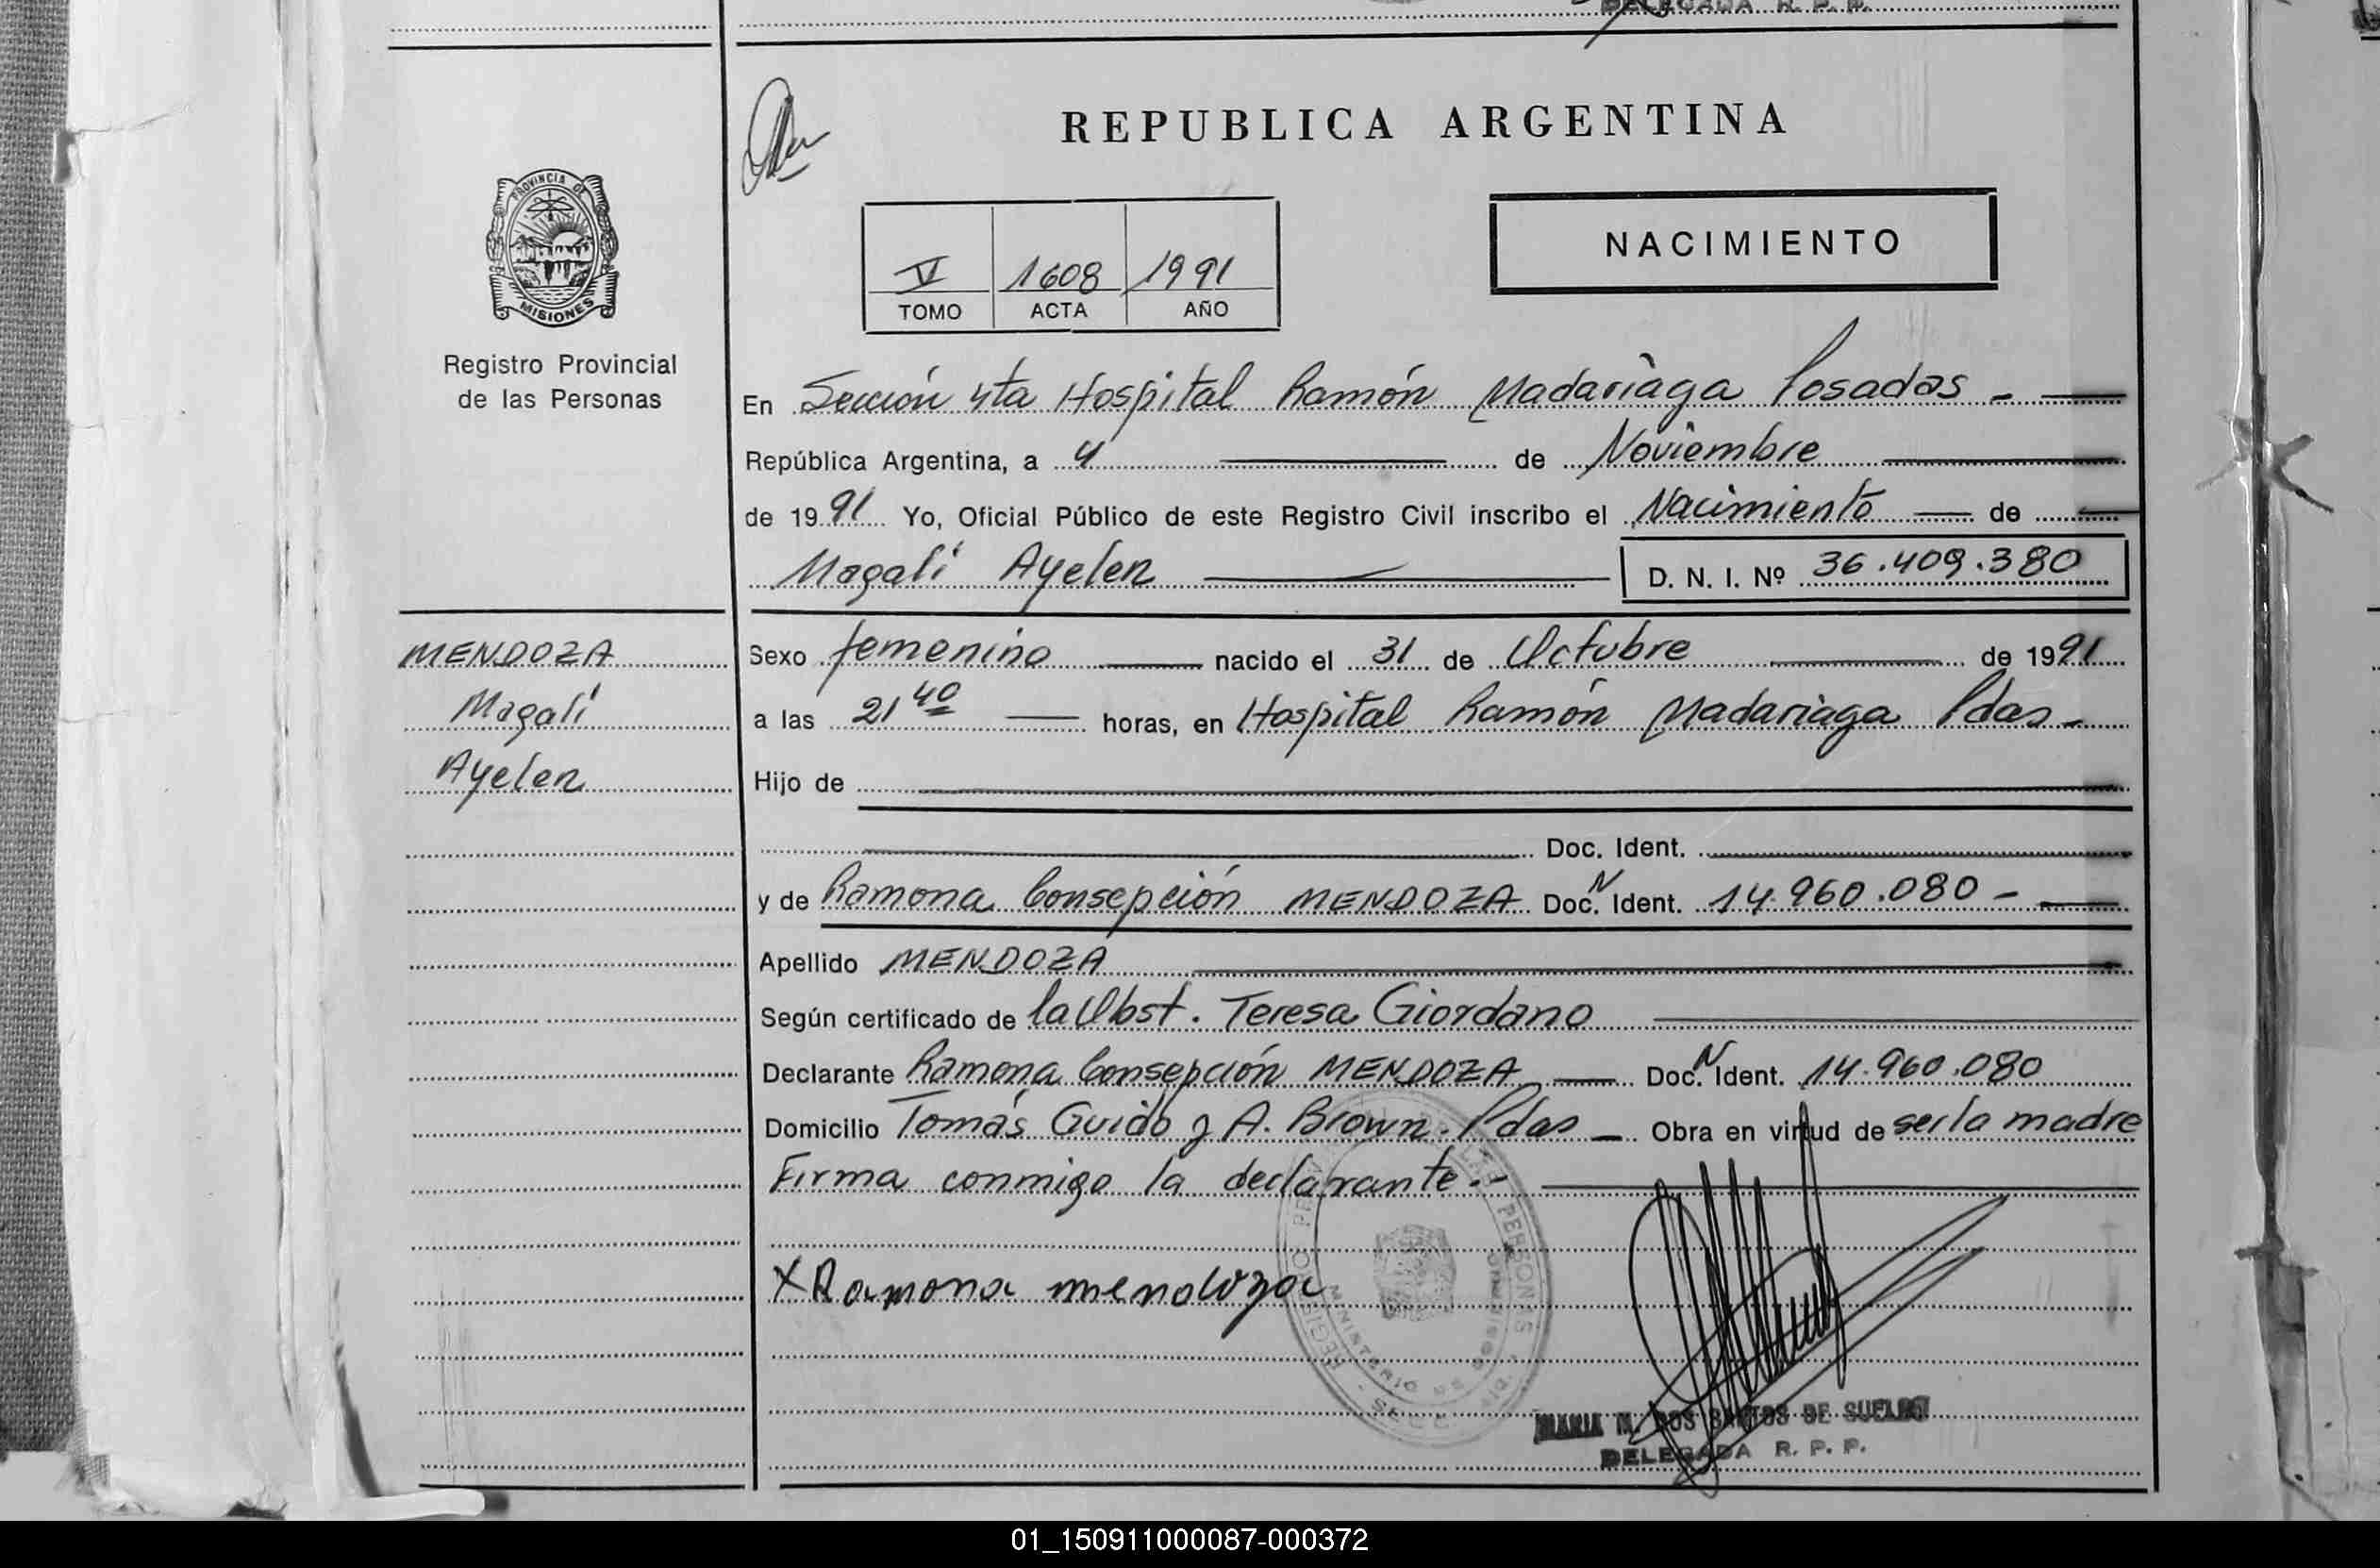 DELEGADA R. P. P.
REPUBLICA ARGENTINA
PROVINCIA DE
MISIONES
Registro Provincial
de las Personas
V 1608 1991
TOMO ACTA AÑO
NACIMIENTO
En Sección 4ta Hospital Ramón Madariaga Posadas -
República Argentina, a 4 de Noviembre
de 1991 Yo, Oficial Público de este Registro Civil inscribo el Nacimiento de
Magalí Ayelen D. N. I. Nº 36.409.380
MENDOZA
Magalí
Ayelen
Sexo femenino nacido el 31 de Octubre de 1991
a las 21 40 horas, en Hospital Ramón Madariaga Pdas -
Hijo de
Doc. Ident.
y de Ramona Consepción MENDOZA Doc. N Ident. 14.960.080 -
Apellido MENDOZA
Según certificado de la Obst. Teresa Giordano
Declarante Ramona Consepción MENDOZA Doc. N Ident. 14.960.080
Domicilio Tomás Guido y A. Brown. Pdas Obra en virtud de ser la madre
Firma conmigo la declarante.-
X Ramona mendoza
MARIA N. DOS SANTOS DE SUELDO
DELEGADA R. P. P.
01_150911000087-000372